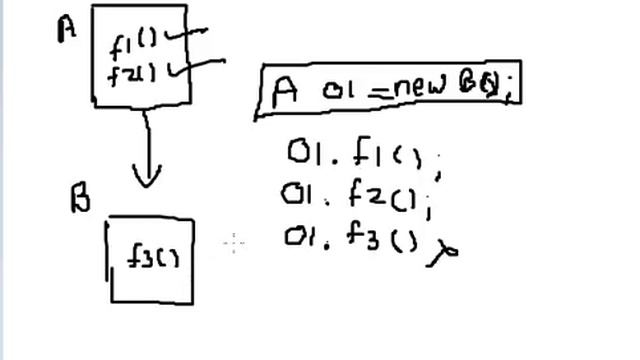 A
f1()
f2()
A O1 = new B();
O1. f1();
O1. f2();
B
O1. f3()
f3()